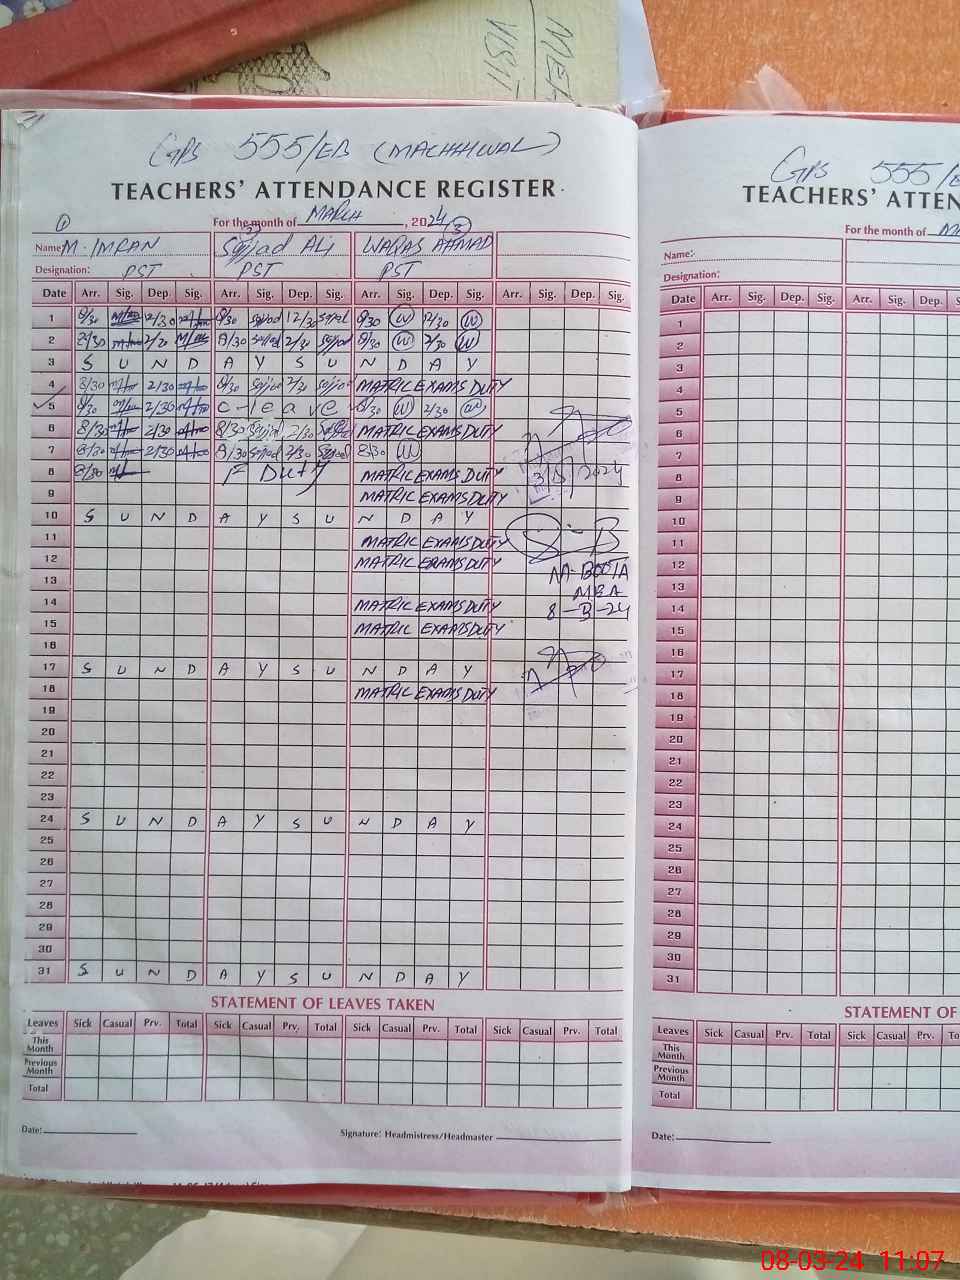 MEA
VISIT
GPS 555/EB (MACHHIWAL)
TEACHERS' ATTENDANCE REGISTER
1 For the month of MARCH, 2024
2 3
Name: M. IMRAN Sajjad Ali WARAS AHMAD
Designation: PST PST PST
Date Arr. Sig. Dep. Sig. Arr. Sig. Dep. Sig. Arr. Sig. Dep. Sig. Arr. Sig. Dep. Sig.
1 8/30 12/30 8/30 Sajjad 12/30 Sajjad 8/30 W 12/30 W
2 8/30 2/30 8/30 Sajjad 2/30 Sajjad 8/30 W 2/30 W
3 S U N D A Y S U N D A Y
4 8/30 2/30 8/30 Sajjad 2/30 Sajjad MATRIC EXAMS DUTY
5 8/30 2/30 C-leave 8/30 W 2/30 W
6 8/30 2/30 8/30 Sajjad 2/30 Sajjad MATRIC EXAMS DUTY
7 8/30 2/30 8/30 Sajjad 2/30 Sajjad 8/30 W
8 8/30 F Duty MATRIC EXAMS DUTY
9 MATRIC EXAMS DUTY
10 S U N D A Y S U N D A Y
11 MATRIC EXAMS DUTY
12 MATRIC EXAMS DUTY
M. BOOTA
13
MEA
14 MATRIC EXAMS DUTY
15 MATRIC EXAMS DUTY
16
17 S U N D A Y S U N D A Y
18 MATRIC EXAMS DUTY
19
20
21
22
23
24 S U N D A Y S U N D A Y
25
26
27
28
29
30
31 S U N D A Y S U N D A Y
STATEMENT OF LEAVES TAKEN
Leaves Sick Casual Prv. Total Sick Casual Prv. Total Sick Casual Prv. Total Sick Casual Prv. Total
This Month
Previous Month
Total
Date: Signature: Headmistress/Headmaster
GPS 555/E
TEACHERS' ATTEN
For the month of
Name:
Designation:
Date Arr. Sig. Dep. Sig. Arr. Sig. Dep.
1
2
3
4
5
6
7
8
9
10
11
12
13
14
15
16
17
18
19
20
21
22
23
24
25
26
27
28
29
30
31
STATEMENT OF
Leaves Sick Casual Prv. Total Sick Casual Prv. To
This Month
Previous Month
Total
Date:
08-03-24 11:07